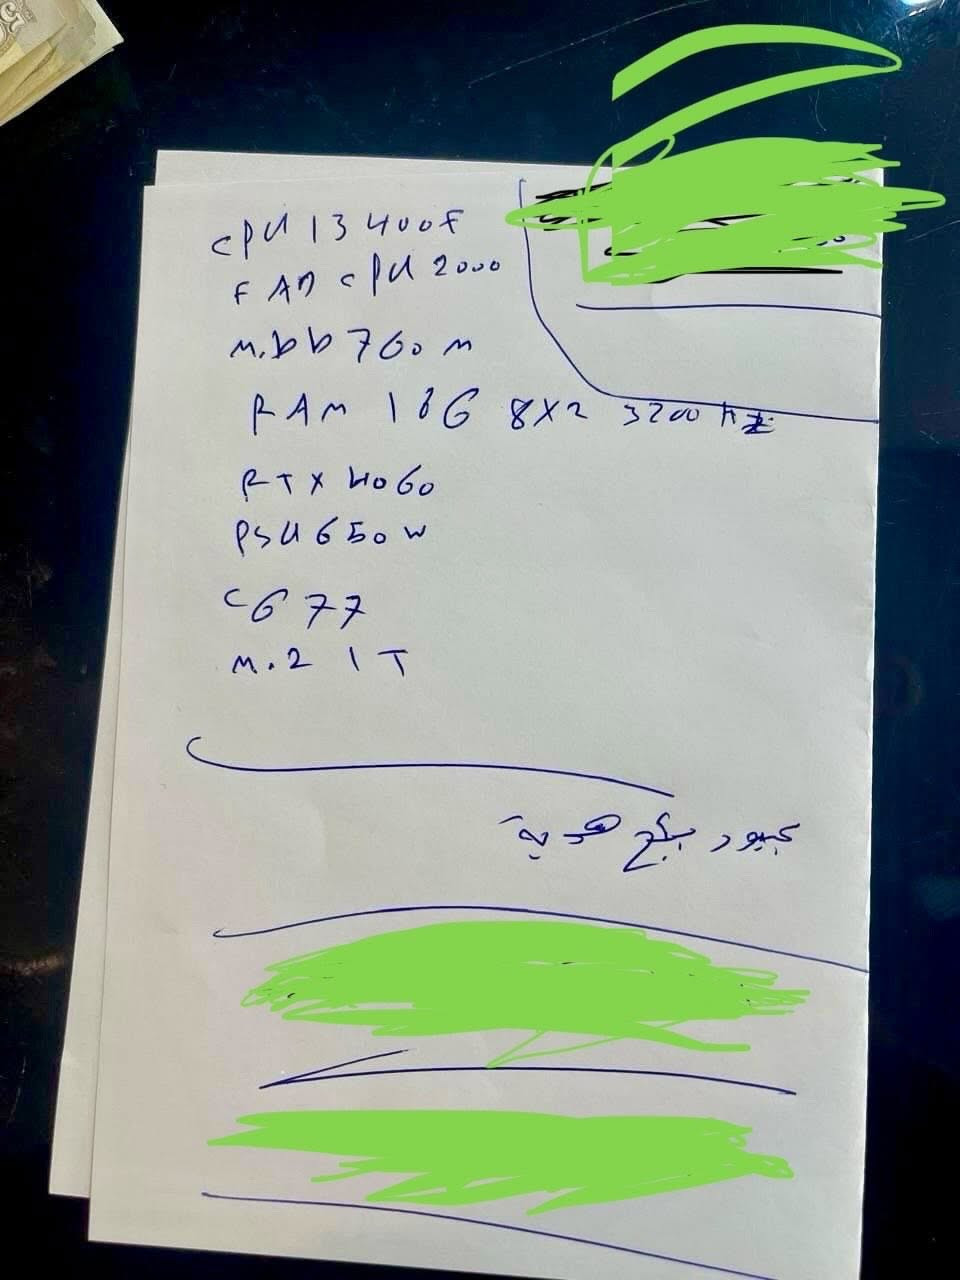 CPU 13400F
FAN CPU 2000
M.bb 760 M
RAM 16G 8X2 3200 Hz
RTX 4060
PSU 650 W
CG 77
M.2 1 T
هدية